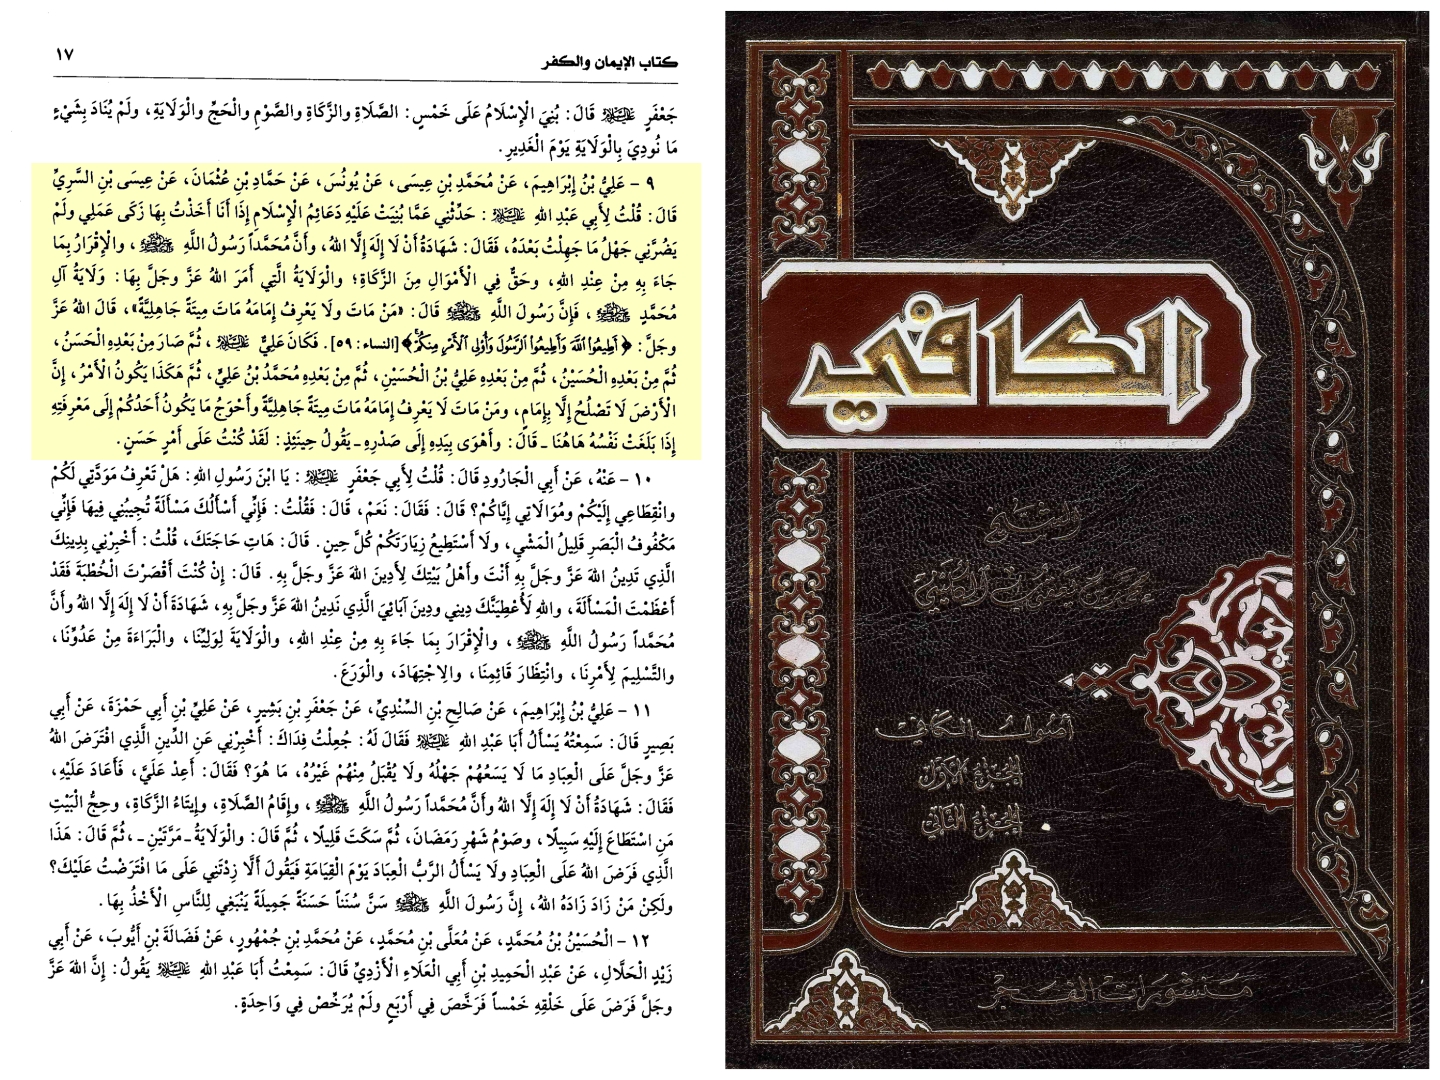 كتاب الإيمان والكفر
١٧
جَعْفَرٍ عليه السلام قَالَ: بُنِيَ الْإِسْلَامُ عَلَى خَمْسٍ: الصَّلَاةِ والزَّكَاةِ والصَّوْمِ والْحَجِّ والْوَلَايَةِ، ولَمْ يُنَادَ بِشَيْءٍ
مَا نُودِيَ بِالْوَلَايَةِ يَوْمَ الْغَدِيرِ.
٩ - عَلِيُّ بْنُ إِبْرَاهِيمَ، عَنْ مُحَمَّدِ بْنِ عِيسَى، عَنْ يُونُسَ، عَنْ حَمَّادِ بْنِ عُثْمَانَ، عَنْ عِيسَى بْنِ السَّرِيِّ
قَالَ: قُلْتُ لِأَبِي عَبْدِ اللهِ عليه السلام: حَدِّثْنِي عَمَّا بُنِيَتْ عَلَيْهِ دَعَائِمُ الْإِسْلَامِ إِذَا أَنَا أَخَذْتُ بِهَا زَكَى عَمَلِي ولَمْ
يَضُرَّنِي جَهْلُ مَا جَهِلْتُ بَعْدَهُ، فَقَالَ: شَهَادَةُ أَنْ لَا إِلَهَ إِلَّا اللهُ، وأَنَّ مُحَمَّداً رَسُولُ اللَّهِ صلى الله عليه وآله وسلم، والْإِقْرَارُ بِمَا
جَاءَ بِهِ مِنْ عِنْدِ اللهِ، وحَقٌّ فِي الْأَمْوَالِ مِنَ الزَّكَاةِ؛ والْوَلَايَةُ الَّتِي أَمَرَ اللهُ عَزَّ وجَلَّ بِهَا: وَلَايَةُ آلِ
مُحَمَّدٍ صلى الله عليه وآله وسلم، فَإِنَّ رَسُولَ اللَّهِ صلى الله عليه وآله وسلم قَالَ: «مَنْ مَاتَ ولَا يَعْرِفُ إِمَامَهُ مَاتَ مِيتَةً جَاهِلِيَّةً»، قَالَ اللهُ عَزَّ
وجَلَّ: ﴿أَطِيعُوا اللَّهَ وَأَطِيعُوا الرَّسُولَ وَأُوْلِي الْأَمْرِ مِنكُمْ﴾ [النساء: ٥٩]. فَكَانَ عَلِيٌّ عليه السلام، ثُمَّ صَارَ مِنْ بَعْدِهِ الْحَسَنُ،
ثُمَّ مِنْ بَعْدِهِ الْحُسَيْنُ، ثُمَّ مِنْ بَعْدِهِ عَلِيُّ بْنُ الْحُسَيْنِ، ثُمَّ مِنْ بَعْدِهِ مُحَمَّدُ بْنُ عَلِيٍّ، ثُمَّ هَكَذَا يَكُونُ الْأَمْرُ، إِنَّ
الْأَرْضَ لَا تَصْلُحُ إِلَّا بِإِمَامٍ، ومَنْ مَاتَ لَا يَعْرِفُ إِمَامَهُ مَاتَ مِيتَةً جَاهِلِيَّةً وأَحْوَجُ مَا يَكُونُ أَحَدُكُمْ إِلَى مَعْرِفَتِهِ
إِذَا بَلَغَتْ نَفْسُهُ هَاهُنَا ـ قَالَ: وأَهْوَى بِيَدِهِ إِلَى صَدْرِهِ ـ يَقُولُ حِينَئِذٍ: لَقَدْ كُنْتُ عَلَى أَمْرٍ حَسَنٍ.
١٠ - عَنْهُ، عَنْ أَبِي الْجَارُودِ قَالَ: قُلْتُ لِأَبِي جَعْفَرٍ عليه السلام: يَا ابْنَ رَسُولِ اللهِ: هَلْ تَعْرِفُ مَوَدَّتِي لَكُمْ
وانْقِطَاعِي إِلَيْكُمْ ومُوَالَاتِي إِيَّاكُمْ؟ قَالَ: فَقَالَ: نَعَمْ، قَالَ: فَقُلْتُ: فَإِنِّي أَسْأَلُكَ مَسْأَلَةً تُجِيبُنِي فِيهَا فَإِنِّي
مَكْفُوفُ الْبَصَرِ قَلِيلُ الْمَشْيِ، ولَا أَسْتَطِيعُ زِيَارَتَكُمْ كُلَّ حِينٍ. قَالَ: هَاتِ حَاجَتَكَ، قُلْتُ: أَخْبِرْنِي بِدِينِكَ
الَّذِي تَدِينُ اللهَ عَزَّ وجَلَّ بِهِ أَنْتَ وأَهْلُ بَيْتِكَ لِأَدِينَ اللهَ عَزَّ وجَلَّ بِهِ. قَالَ: إِنْ كُنْتَ أَقْصَرْتَ الْخُطْبَةَ فَقَدْ
أَعْظَمْتَ الْمَسْأَلَةَ، واللهِ لَأُعْطِيَنَّكَ دِينِي ودِينَ آبَائِيَ الَّذِي نَدِينُ اللهَ عَزَّ وجَلَّ بِهِ، شَهَادَةَ أَنْ لَا إِلَهَ إِلَّا اللهُ وأَنَّ
مُحَمَّداً رَسُولُ اللَّهِ صلى الله عليه وآله وسلم، والْإِقْرَارَ بِمَا جَاءَ بِهِ مِنْ عِنْدِ اللهِ، والْوَلَايَةَ لِوَلِيِّنَا، والْبَرَاءَةَ مِنْ عَدُوِّنَا،
والتَّسْلِيمَ لِأَمْرِنَا، وانْتِظَارَ قَائِمِنَا، والِاجْتِهَادَ، والْوَرَعَ.
١١ - عَلِيُّ بْنُ إِبْرَاهِيمَ، عَنْ صَالِحِ بْنِ السِّنْدِيِّ، عَنْ جَعْفَرِ بْنِ بَشِيرٍ، عَنْ عَلِيِّ بْنِ أَبِي حَمْزَةَ، عَنْ أَبِي
بَصِيرٍ قَالَ: سَمِعْتُهُ يَسْأَلُ أَبَا عَبْدِ اللهِ عليه السلام فَقَالَ لَهُ: جُعِلْتُ فِدَاكَ: أَخْبِرْنِي عَنِ الدِّينِ الَّذِي افْتَرَضَ اللهُ
عَزَّ وجَلَّ عَلَى الْعِبَادِ مَا لَا يَسَعُهُمْ جَهْلُهُ ولَا يُقْبَلُ مِنْهُمْ غَيْرُهُ، مَا هُوَ؟ فَقَالَ: أَعِدْ عَلَيَّ، فَأَعَادَ عَلَيْهِ،
فَقَالَ: شَهَادَةُ أَنْ لَا إِلَهَ إِلَّا اللهُ وأَنَّ مُحَمَّداً رَسُولُ اللهِ صلى الله عليه وآله وسلم، وإِقَامُ الصَّلَاةِ، وإِيتَاءُ الزَّكَاةِ، وحِجُّ الْبَيْتِ
مَنِ اسْتَطَاعَ إِلَيْهِ سَبِيلًا، وصَوْمُ شَهْرِ رَمَضَانَ، ثُمَّ سَكَتَ قَلِيلًا، ثُمَّ قَالَ: والْوَلَايَةُ ـ مَرَّتَيْنِ ـ، ثُمَّ قَالَ: هَذَا
الَّذِي فَرَضَ اللهُ عَلَى الْعِبَادِ ولَا يَسْأَلُ الرَّبُّ الْعِبَادَ يَوْمَ الْقِيَامَةِ فَيَقُولَ أَلَّا زِدْتَنِي عَلَى مَا افْتَرَضْتُ عَلَيْكَ؟
ولَكِنْ مَنْ زَادَ زَادَهُ اللهُ، إِنَّ رَسُولَ اللَّهِ صلى الله عليه وآله وسلم سَنَّ سُنَناً حَسَنَةً جَمِيلَةً يَنْبَغِي لِلنَّاسِ الْأَخْذُ بِهَا.
١٢ - الْحُسَيْنُ بْنُ مُحَمَّدٍ، عَنْ مُعَلَّى بْنِ مُحَمَّدٍ، عَنْ مُحَمَّدِ بْنِ جُمْهُورٍ، عَنْ فَضَالَةَ بْنِ أَيُّوبَ، عَنْ أَبِي
زَيْدٍ الْحَلَّالِ، عَنْ عَبْدِ الْحَمِيدِ بْنِ أَبِي الْعَلَاءِ الْأَزْدِيِّ قَالَ: سَمِعْتُ أَبَا عَبْدِ اللهِ عليه السلام يَقُولُ: إِنَّ اللهَ عَزَّ
وجَلَّ فَرَضَ عَلَى خَلْقِهِ خَمْساً فَرَخَّصَ فِي أَرْبَعٍ ولَمْ يُرَخِّصْ فِي وَاحِدَةٍ.
الكافي
الشيخ
محمد بن يعقوب الكليني
أصول الكافي
الجزء الأول
الجزء الثاني
منشورات الفجر